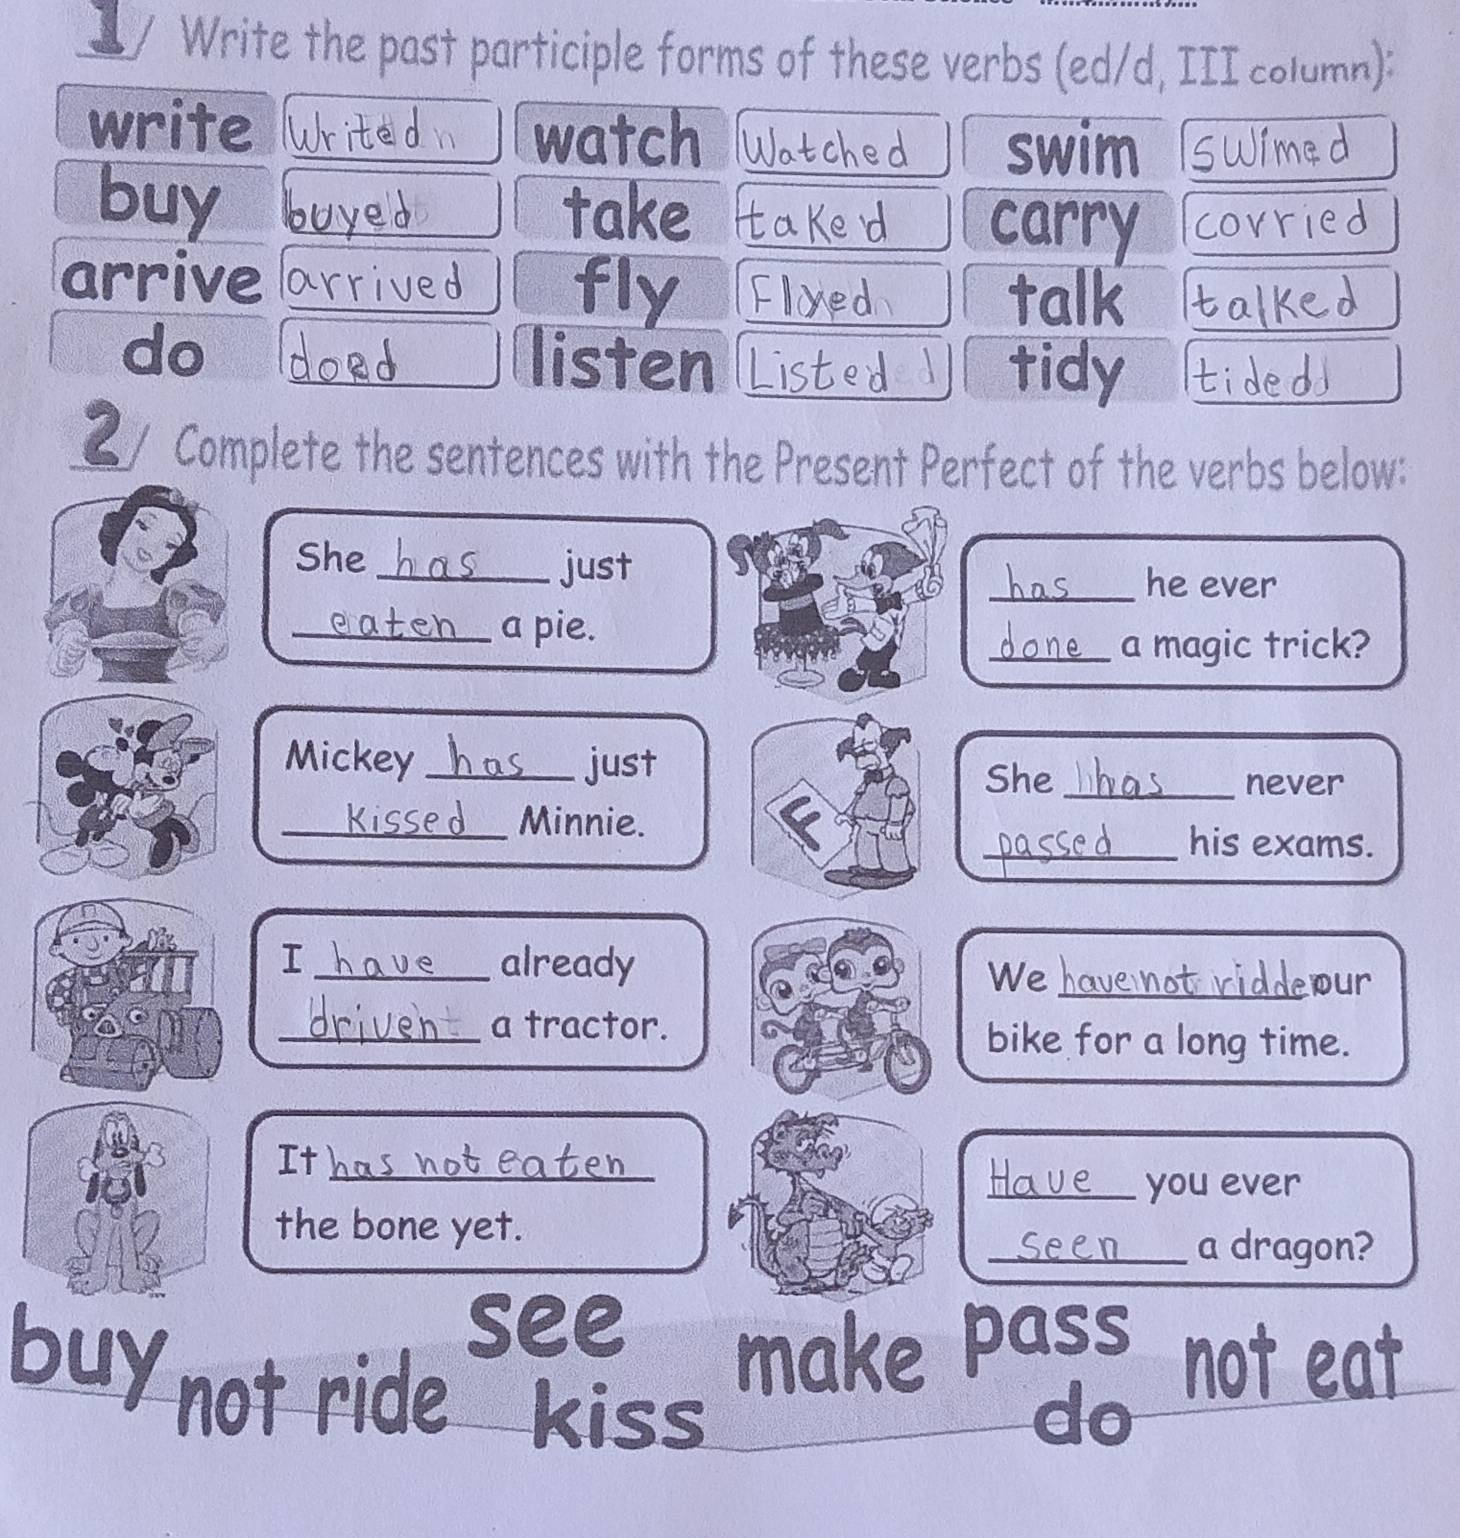 1/ Write the past participle forms of these verbs (ed/d, III column):
write Writed watch Watched swim swimed
buy buyed take taked carry corried
arrive arrived fly Flyed talk talked
do doed listen Listed tidy tided
2/ Complete the sentences with the Present Perfect of the verbs below:
She has just
eaten a pie.
has he ever
done a magic trick?
Mickey has just
kissed Minnie.
She has never
passed his exams.
F
I have already
driven a tractor.
We have not ridden our
bike for a long time.
It has not eaten
the bone yet.
Have you ever
seen a dragon?
buy not ride see kiss make pass do not eat